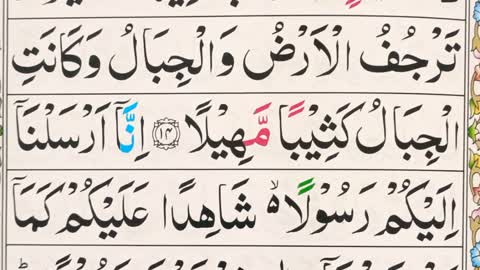 تَرْجُفُ الْاَرْضُ وَالْجِبَالُ وَكَانَتِ
الْجِبَالُ كَثِيْبًا مَّهِيْلًا ﴿۱۴﴾ اِنَّاۤ اَرْسَلْنَاۤ
اِلَيْكُمْ رَسُوْلًا ۙ۬ شَاهِدًا عَلَيْكُمْ كَمَاۤ